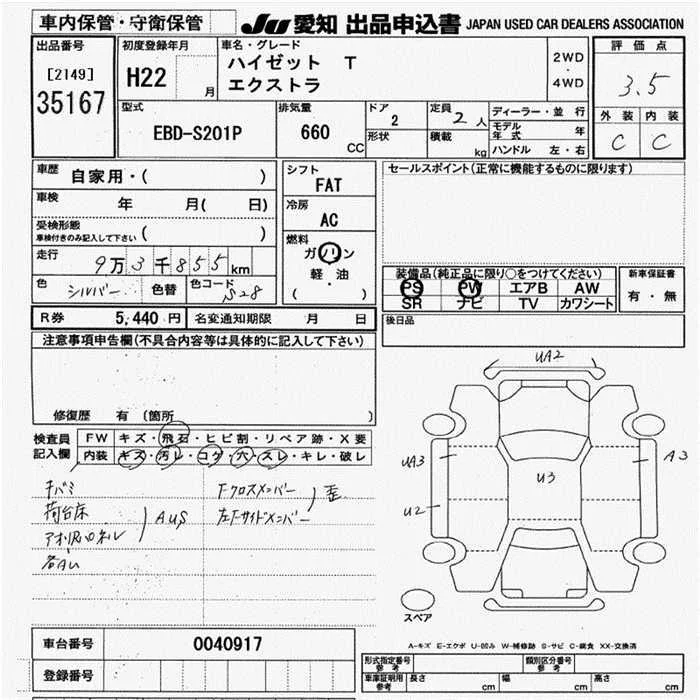 車内保管・守衛保管
JU 愛知 出品申込書 JAPAN USED CAR DEALERS ASSOCIATION
出品番号
[2149]
35167
初度登録年月
H22 月
車名・グレード
ハイゼット T
エクストラ
2WD
・
4WD
評価点
3.5
外装 内装
C C
型式
EBD-S201P
排気量
660 CC
ドア
2
形状
定員
2人
積載
kg
ディーラー・並行
モデル年式 年
ハンドル 左・右
車歴
自家用・( )
車検
年 月( 日)
受検形態
車検付きのみ記入して下さい ( )
走行
9万3千855km
色
シルバー 色替
色コード
S28
シフト
FAT
冷房
AC
燃料
ガソリン
軽・油
( )
セールスポイント(正常に機能するものに限ります)
装備品(純正品に限り○をつけてください)
PS PW エアB AW
SR ナビ TV カワシート
新車保証書
有・無
後日品
R券 5,440 円 名変通知期限 月 日
注意事項申告欄(不具合内容等は具体的に記入して下さい)
修復歴 有 (箇所 )
検査員
記入欄
FW キズ・飛石・ヒビ割・リペア跡・X要
内装 キズ・汚レ・コゲ・穴・スレ・キレ・破レ
キバミ
荷台床
アオリ内パネル
AUS
各AU
Fクロスメンバー
左Fサイドメンバー
歪
UA2
UA3
U2
U3
A3
スペア
A-キズ E-エクボ U-凹み W-補修跡 S-サビ C-腐食 XX-交換済
車台番号 0040917
登録番号
形式指定番号
参考
類別区分番号
参考
車庫証明用
参考
長さ cm 幅 cm 高さ cm